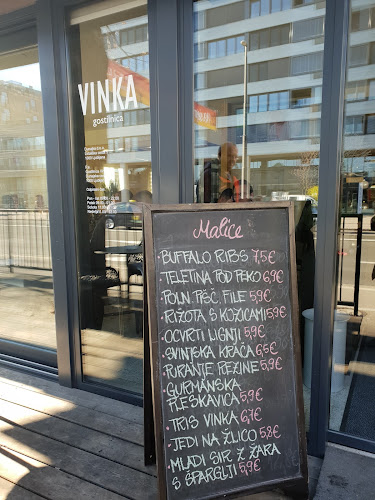 VINKA
gostilnica
Malice
·BUFFALO RIBS 7,5€
·TELETINA POD PEKO 6,9€
·POLN. PIŠČ. FILE 5,9€
·RIŽOTA S KOZICAMI 5,9€
·OCVRTI LIGNJI 5,9€
·SVINJSKA KRAČA 6,5€
·PURANJE REZINE 5,9€
·GURMANSKA
PLESKAVICA 5,9€
·TRIS VINKA 6,7€
·JEDI NA ŽLICO 5,2€
·MLADI SIR Z ŽARA
S ŠPARGLJI 5,9€